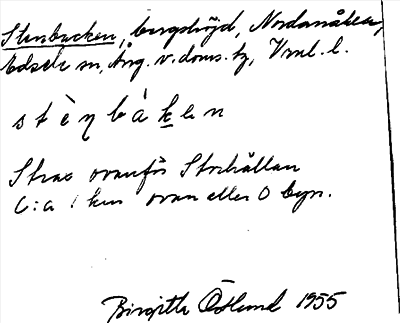 Stensbacken, bergshöjd, Nordanåker,
Edsele sn, Ång. v. doms. tg, Vnl. l.
stèŋbàken
Strax ovanför Storhällan
C:a 1 km ovan eller O byn.
Birgitta Östlund 1955